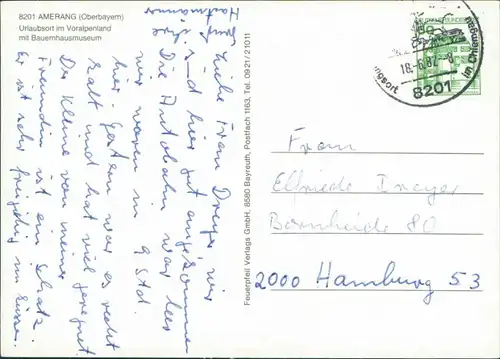 8201 AMERANG (Oberbayern)
Urlaubsort im Voralpenland
mit Bauernhausmuseum
Liebe Frau Dreyer, wir
sind hier gut angekommen
Die Autobahn war leer
wir waren in 9 Std.
hier. Gestern war es recht
kalt und hat viel geregnet
Der Kleine von meiner
Freundin ist ein Schatz.
Er ist sehr freigebig im Küssen.
Hartmann
Feuerpfeil Verlags GmbH, 8580 Bayreuth, Postfach 1163, Tel. 0921/21011
18.-6.82.-8
8201
im Chiemgau
Frau
Elfriede Dreyer
Bornheide 80
2000 Hamburg 53